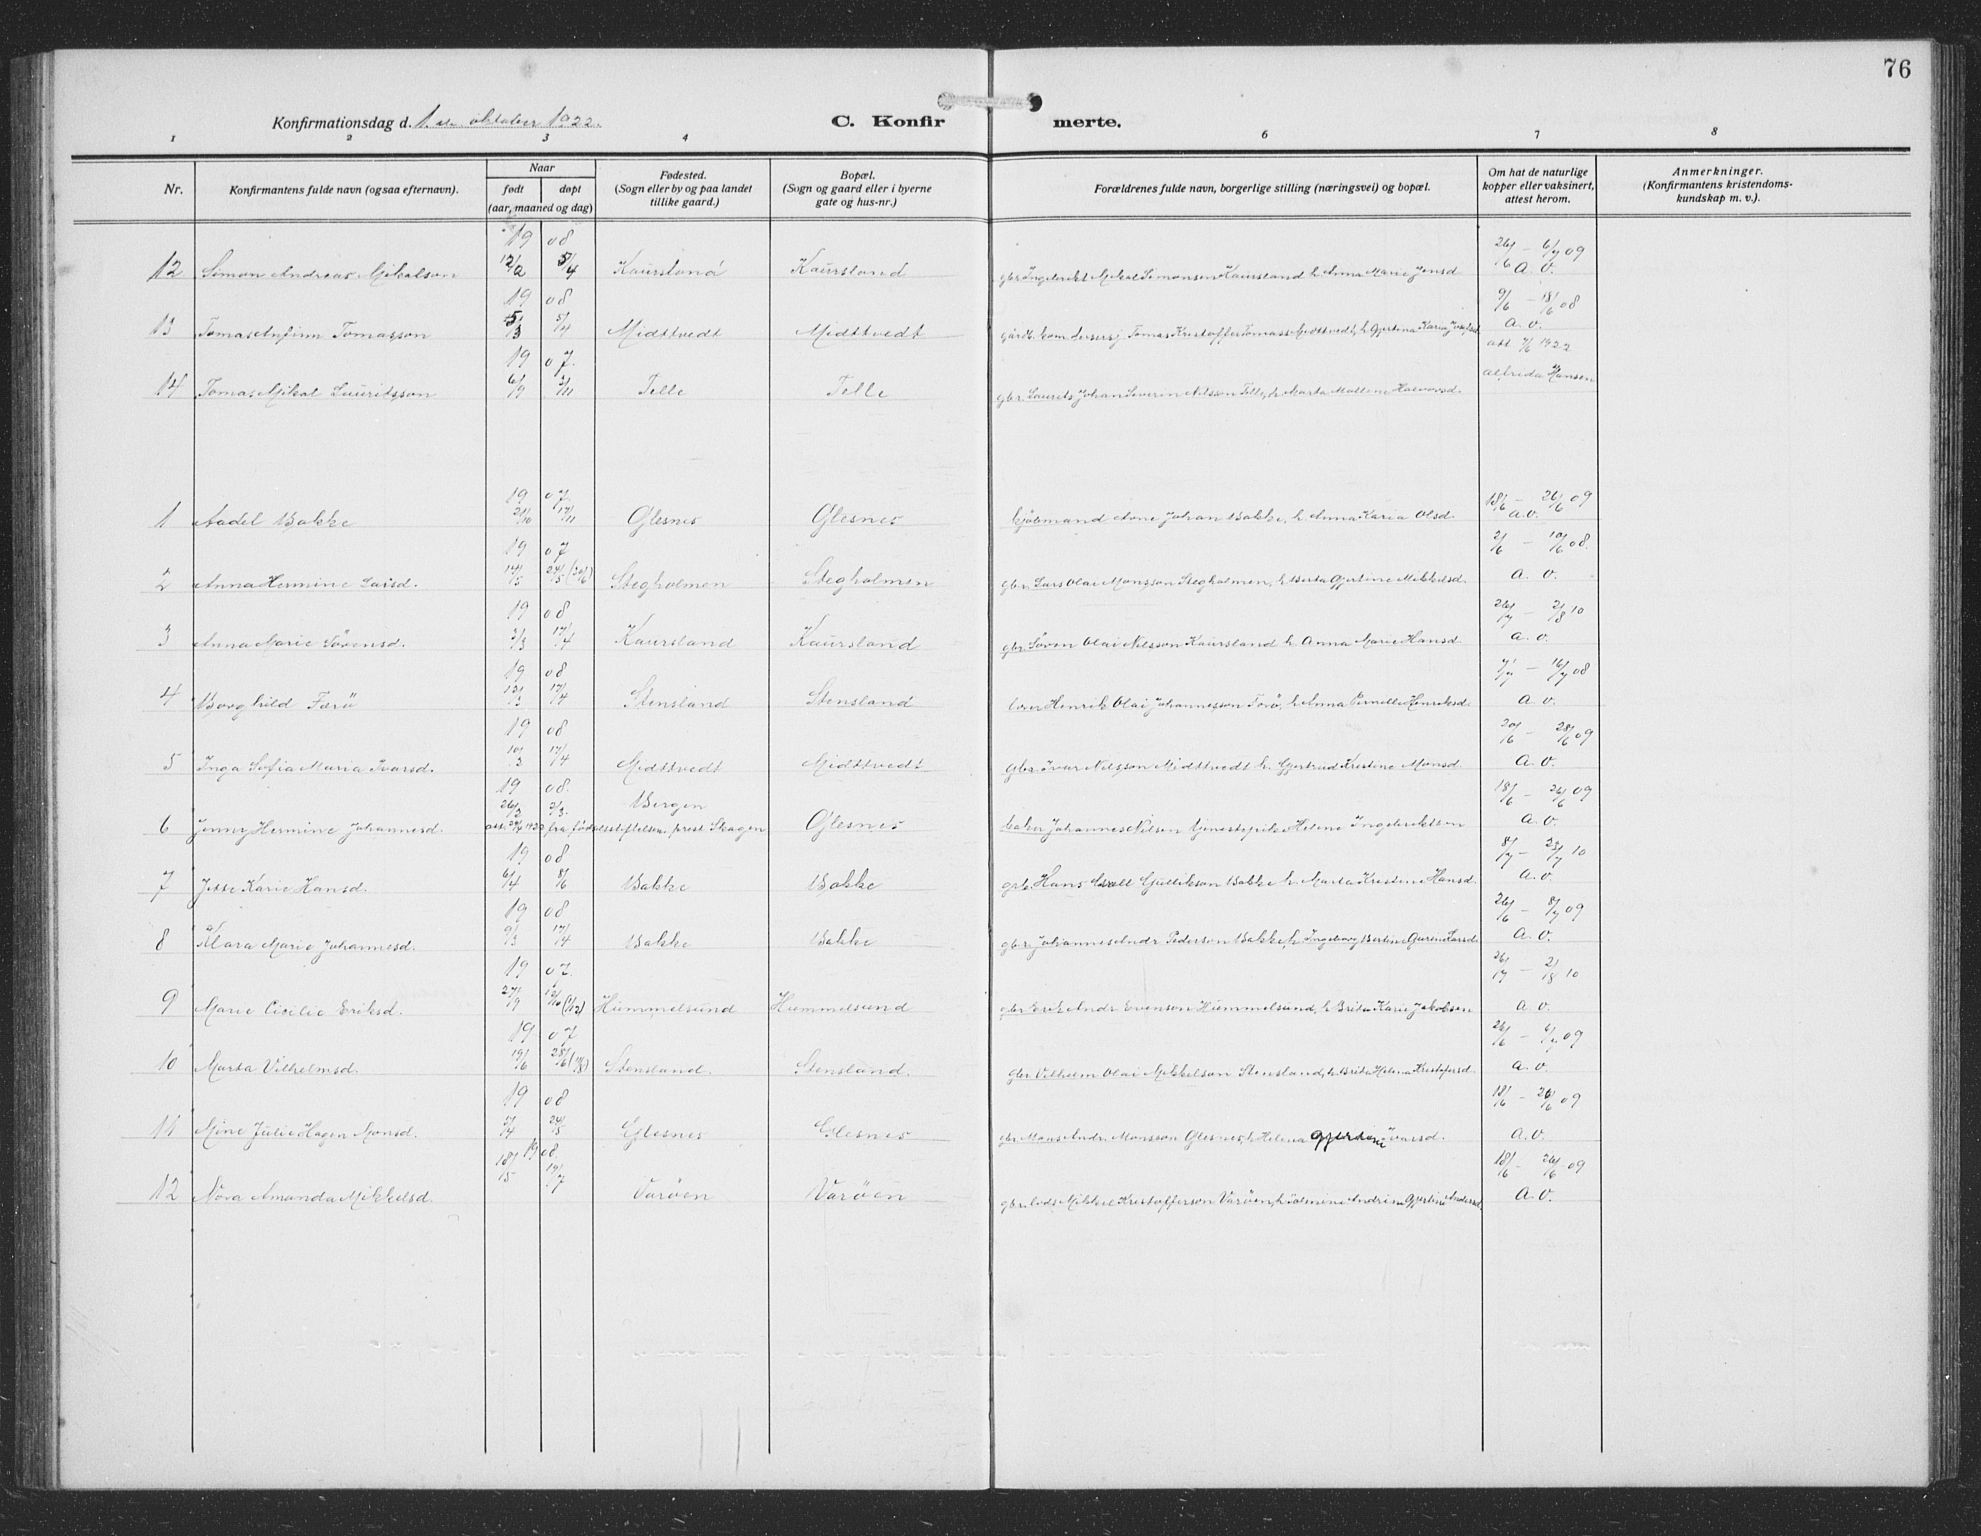 76
Konfirmationsdag d. 1ste oktober 1922.
C. Konfirmerte.
1 2 3 4 6 7 8
Nr.
Konfirmantens fulde navn (ogsaa efternavn).
Naar
født døpt
(aar, maaned og dag)
Fødested.
(Sogn eller by og paa landet
tillike gaard.)
Bopæl.
(Sogn og gaard eller i byerne
gate og hus-nr.)
Forældrenes fulde navn, borgerlige stilling (næringsvei) og bopæl.
Om hat de naturlige
kopper eller vaksinert,
attest herom.
Anmerkninger.
(Konfirmantens kristendoms-
kundskap m. v.).
19 08 26/6 – 6/7 09
12 Simon Andreas Mikalson 12/2 5/4 Kaursland Kaursland gbr Ingebrikt Mikal Simonsen Kaursland h. Anna Marie Jensd a. v.
19 08 9/6 – 18/6 08
13 Tomas Anfinn Tomasson 5/3 5/4 Midttvedt Midttvedt Tomas Kristoffer Tomass Midttvedt, h. Gjertina Karia a. v.
19 07. att 1922
14 Tomas Mikal Lauritsson 6/9 3/11 Telle Telle gbr. Laurits Johan Severin Nilsson Telle, h. Marta Mallene Halvorsd. alfrida Hansen
19 07. 18/6 – 26/6 09
1 Aadel Bakke 21/10 17/11 Glesnes Glesnes kjøbmand Arne Johan Bakke, h. Anna Karia Olsd. a. v.
19 07 2/6 – 10/6 08.
2 Anna Hermine Larsd. 14/5 24/5 (30/6) Stegholmen Stegholmen gbr. Lars Olai Monsson Stegholmen, h. Berta Gjertine Mikkelsd. a. v.
19 08 26/7 – 2/8 10
3 Anna Marie Sørensd. 3/3 17/4 Kaursland Kaursland gbr. Søren Olai Nilsson Kaursland h. Anna Marie Hansd. a. v.
19 08 7/7 – 16/7 08
4 Borghild Færö 13/3 17/4 Stensland Stensland Henrik Olai Johannesson Færö, h. Anna Pernille Henriksd. a. v.
19 08 20/6 – 28/6 09
5 Inga Sofia Maria Ivarsd. 10/3 17/4 Midttvedt Midttvedt gbr. Ivar Nilsson Midttvedt h. Gjertrud Kristine Monsd. a. v.
19 08. Bergen 18/6 – 26/6 09
6 Jenny Hermine Johannesd. 26/2 2/3. att. 1922 fra fødselsstiftelsen, prest Skagen Glesnes baker Johannes Nilsen Helene Ingebriktsen a. v.
19 08 8/7 – 23/7 10
7 Jette Karie Hansd. 6/4 8/6 Bakke Bakke Hans Gullikson Bakke h. Marta Kristene Hansd. a. v.
19 08 26/6 – 8/7 09
8 Klara Marie Johannesd. 9/3 17/4 Bakke Bakke gbr. Johannes Andr Pederson Bakke, h. Ingeborg Bertine Gurine Larsd. a. v.
19 07. 26/7 – 2/8 10
9 Marie Cicilie Eriksd. 27/9 13/10 (1/12) Hummelsund Hummelsund gbr Erik Andr Evenson Hummelsund, h. Brita Karie Jakobsen a. v.
19 07 26/6 – 6/7 09
10 Marta Vilhelmsd. 19/6 28/6 (11/8) Stensland. Stensland. gbr Vilhelm Olai Mikkelson Stensland, h. Brita Helena Kristofersd. a. v.
19 08 18/6 – 26/6 09
11 Mine Julie Hagen Monsd. 3/4 24/5 Glesnes Glesnes gbr Mons Andr. Monsson Glesnes, h Helena Gjertine Ivarsd. a. v.
19 08. 18/6 – 26/6 09
12 Nora Amanda Mikkelsd. 18/5 19/7 Varöen Varöen Mikkel Kristofferson Varöen, h. Andrine Gjertine Andersd. a. v.